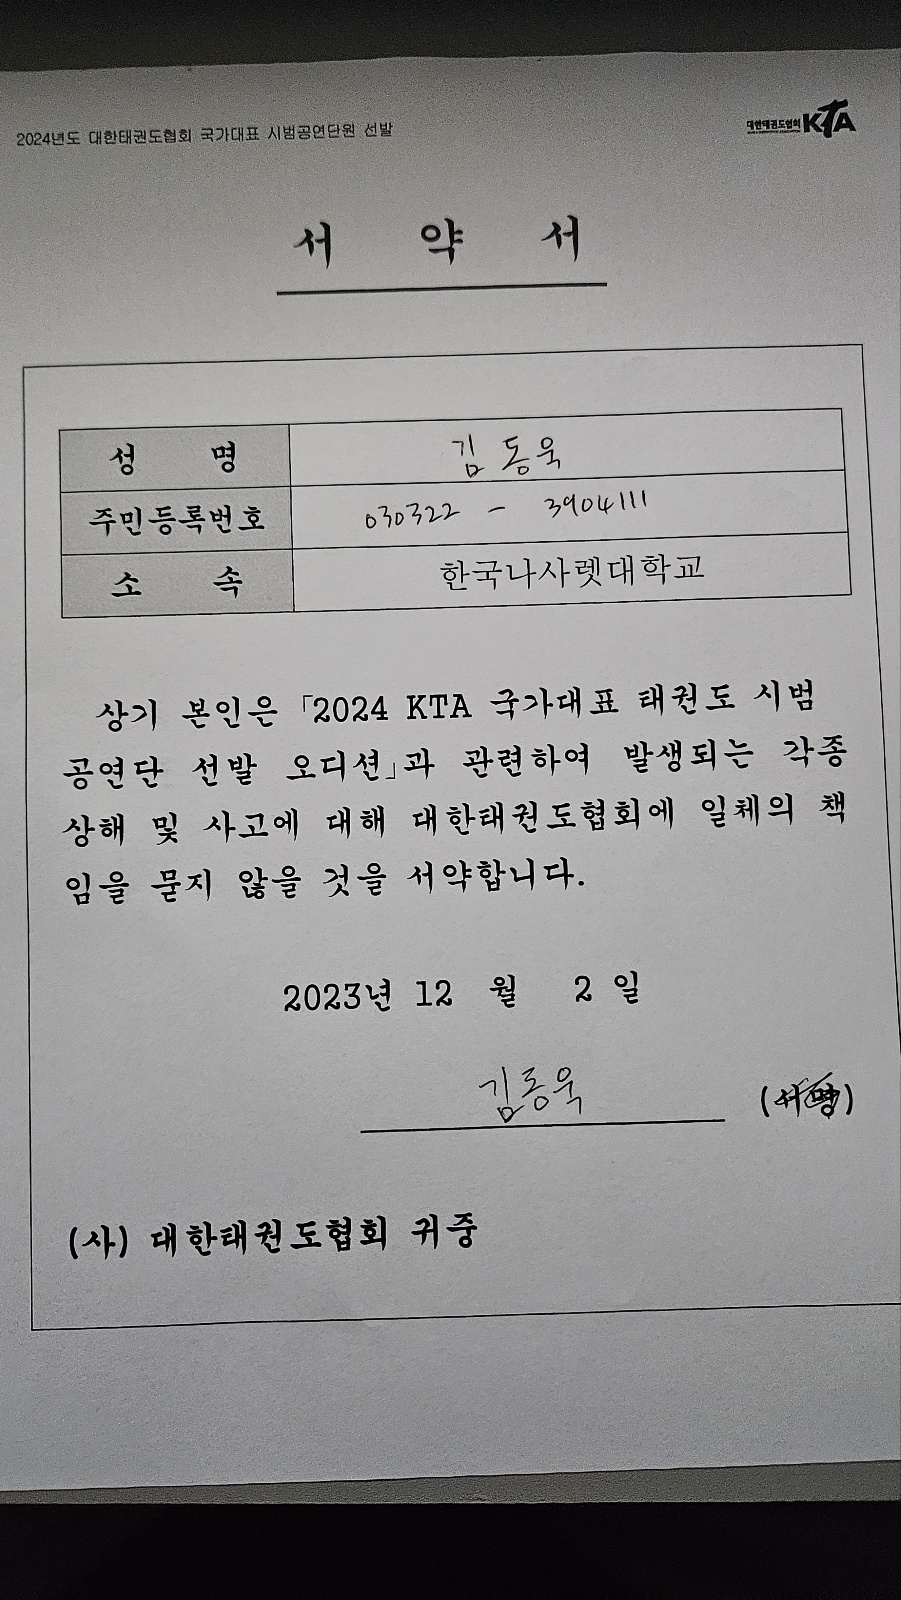 2024년도 대한태권도협회 국가대표 시범공연단원 선발
대한태권도협회 KTA
서 약 서
성 명 김동욱
주민등록번호 030322 - 3904111
소 속 한국나사렛대학교
상기 본인은 「2024 KTA 국가대표 태권도 시범
공연단 선발 오디션」과 관련하여 발생되는 각종
상해 및 사고에 대해 대한태권도협회에 일체의 책
임을 묻지 않을 것을 서약합니다.
2023년 12 월 2 일
김동욱 (서명)
(사) 대한태권도협회 귀중